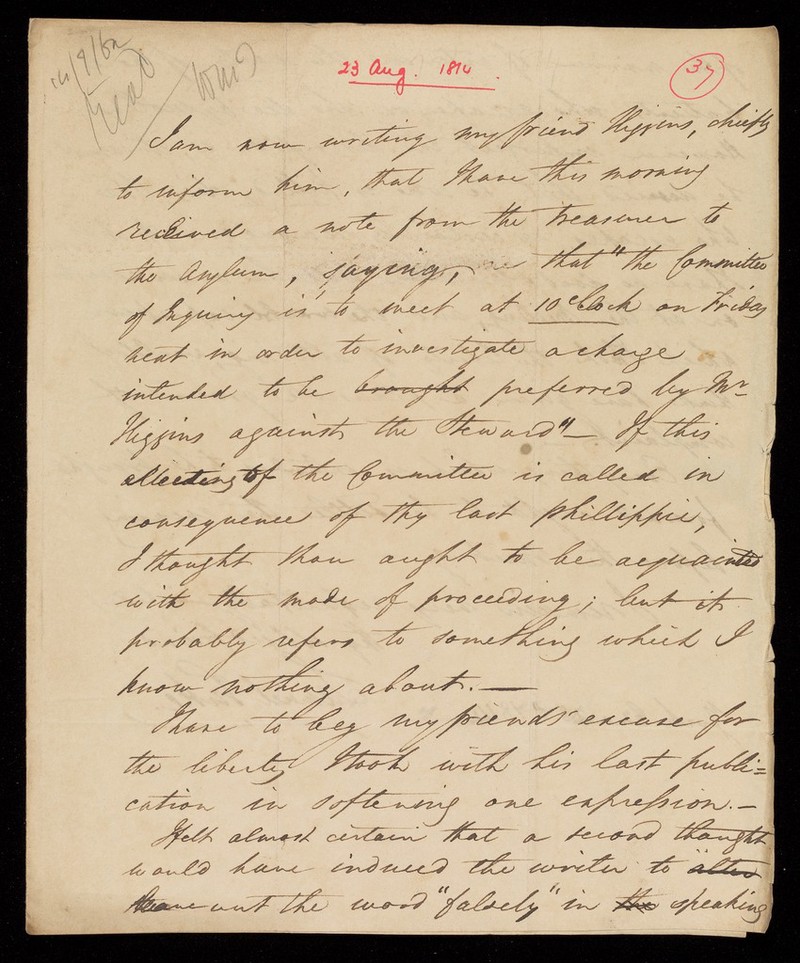 23 Aug. 1814
37
I am now writing my friend Higgins, chiefly
to inform him, that I have this morning
received a note from the treasurer to
the Asylum, saying, that "the Committee
of Inquiry is" to meet at 10 oClock on Friday
next in order to investigate a charge
intended to be brought preferred by Mr
Higgins against the Steward" — If this
Meeting of the Committee is called in
consequence of thy last Phillippic,
I thought thou ought to be acquainted
with the mode of proceeding; but it
probably refers to something which I
know nothing about. —
I have to beg my friends' excuse for
the liberty I took with his last publi=
cation in softening one expression. —
I felt almost certain that a second thought
would have induced the writer to alter
leave out the word "falsely" in the speaking